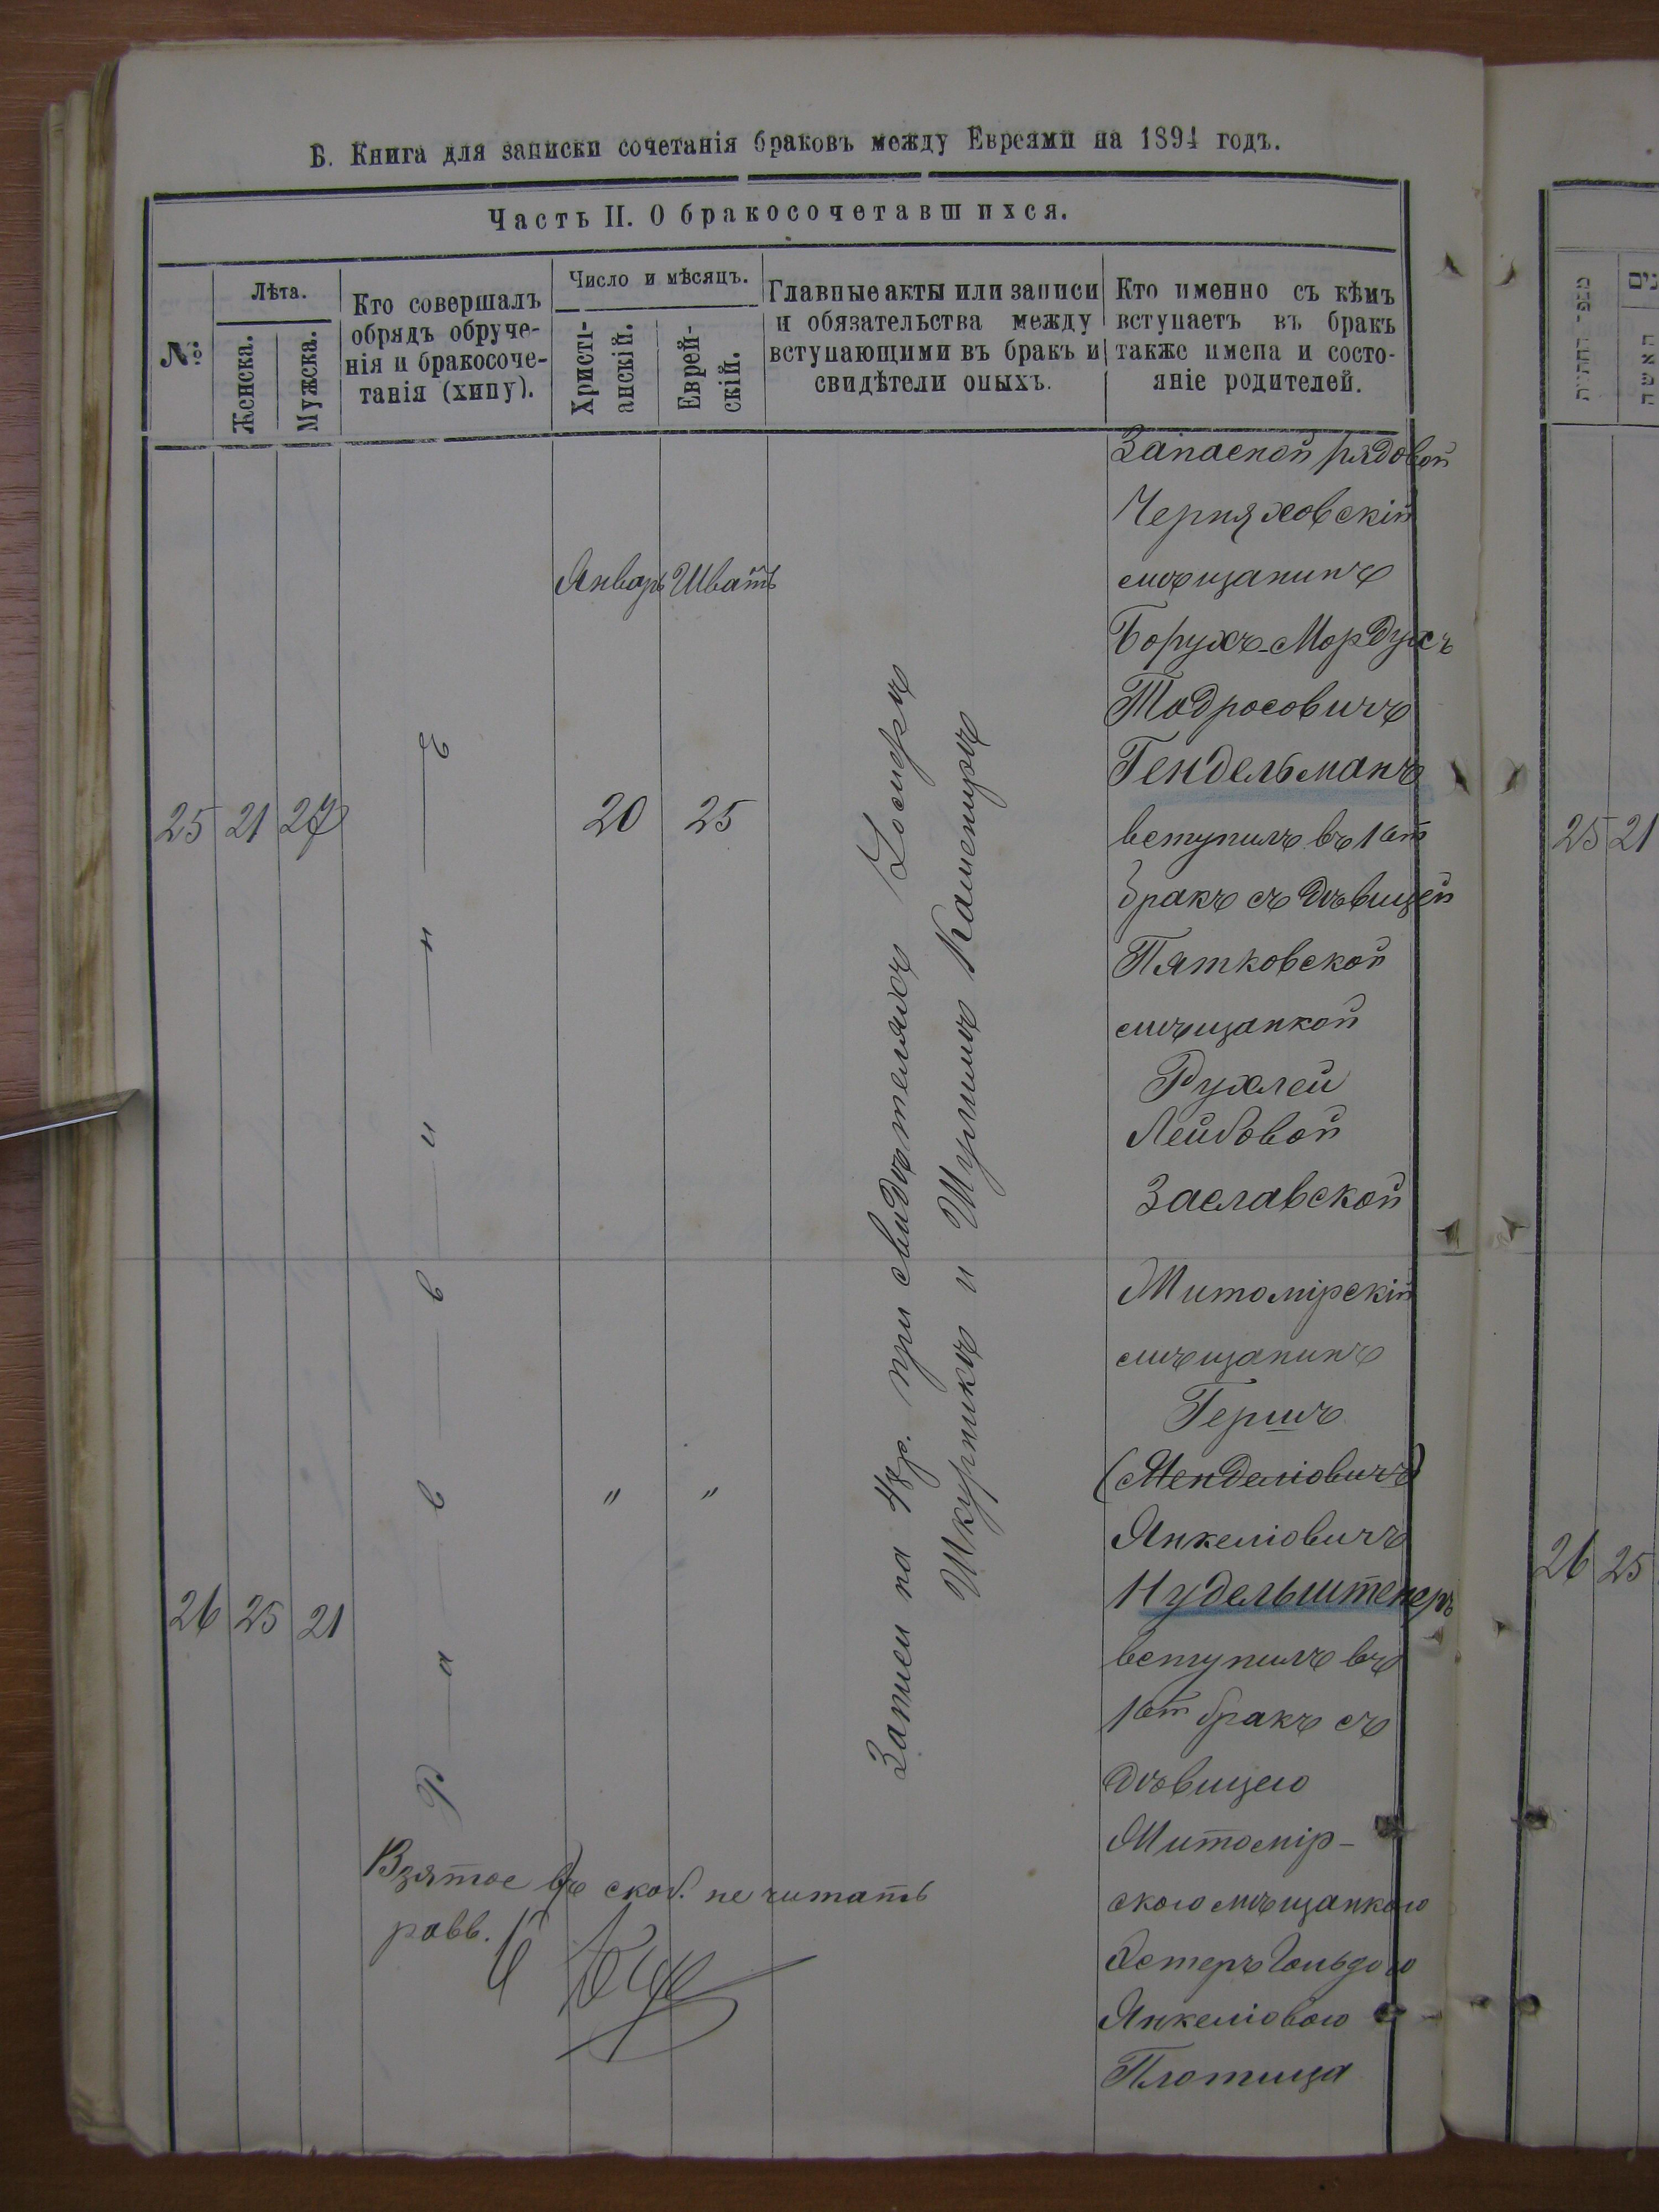 Б. Книга для записки сочетанія браковъ между Евреями на 1894 годъ.
Часть II. О бракосочетавшихся.
№
Лѣта.
Женска.
Мужска.
Кто совершалъ
обрядъ обруче-
нія и бракосоче-
танія (хипу).
Число и мѣсяцъ.
Христі-
анскій.
Еврей-
скій.
Главные акты или записи
и обязательства между
вступающими въ бракъ и
свидѣтели оныхъ.
Кто именно съ кѣмъ
вступаетъ въ бракъ
также имена и состо-
яніе родителей.
Январь Шватъ
25 21 27
20 25
Р а в в и н ъ
при свидѣтеляхъ
Шкурникъ и Шулимъ Камениръ
Запасной рядовой
Черняховскій
мѣщанинъ
Борухъ-Мордухъ
Тодросовичъ
Гендельманъ
вступилъ въ 1ый
бракъ съ дѣвицей
Пятковской
мѣщанкой
Рухлей
Лейбовой
Заславской
26 25 21
" "
Житомірскій
мѣщанинъ
Гершъ
(Менделіовичъ)
Янкеліовичъ
Нудельштехеръ
вступилъ въ
1ый бракъ съ
дѣвицею
Житомір-
скою мѣщанкою
Эстеръ Гольдою
Янкеліовою
Плотица
Взятое въ скоб. не читать
равв.
25 21
26 25